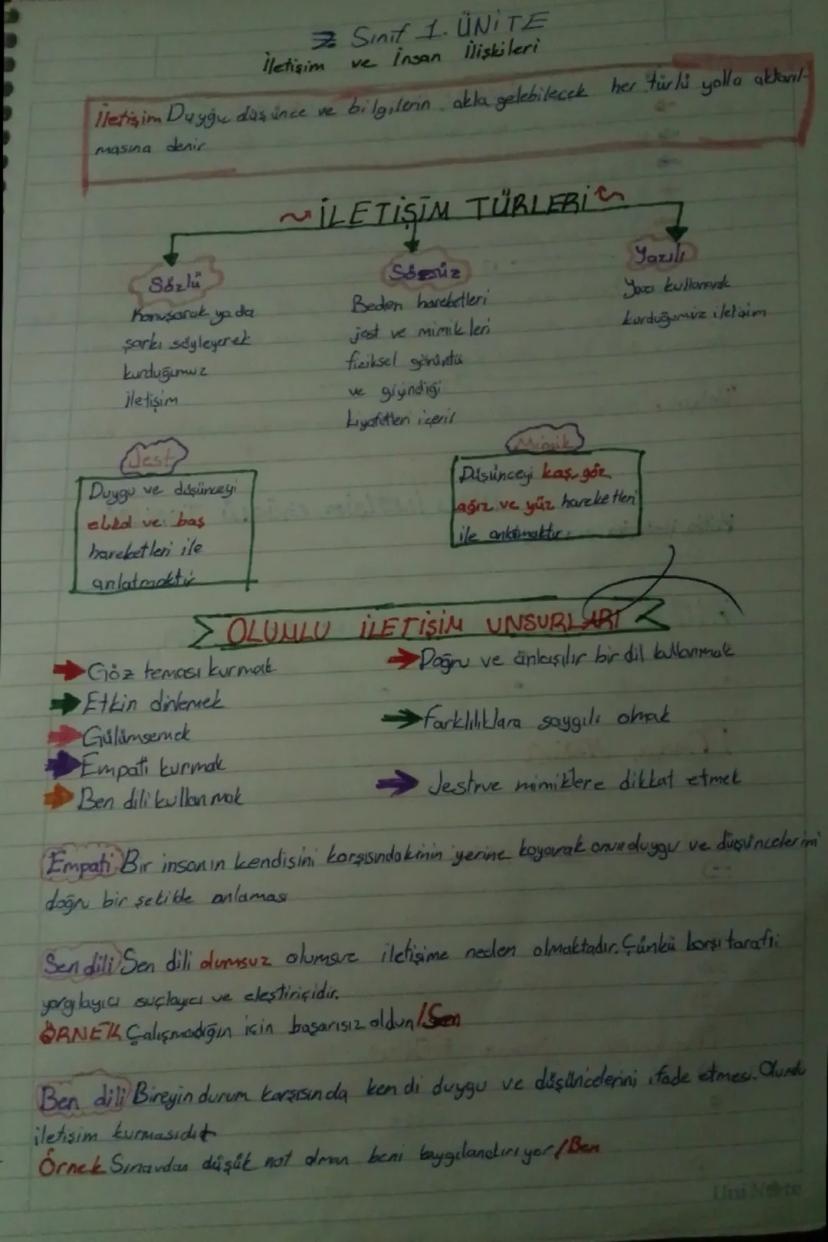 7. Sınıf 1. ÜNİTE
İletişim ve İnsan İlişkileri
İletişim Duygu düşünce ve bilgilerin akla gelebilecek her türlü yolla aktarıl-
masına denir
İLETİŞİM TÜRLERİ
Sözlü
Konuşarak ya da
şarkı söyleyerek
kurduğumuz
iletişim
Sözsüz
Beden hareketleri
jest ve mimikleri
fiziksel görüntü
ve giyindiği
kıyafetleri içerir
Yazılı
Yazı kullanarak
kurduğumuz iletişim
Jest
Duygu ve düşünceyi
elkol ve baş
hareketleri ile
anlatmaktır
Mimik
Düşünceyi kaş göz
ağız ve yüz hareketleri
ile anlatmaktır.
OLUMLU İLETİŞİM UNSURLARI
Göz teması kurmak
Etkin dinlemek
Gülümsemek
Empati kurmak
Ben dili kullanmak
Doğru ve anlaşılır bir dil kullanmak
farklılıklara saygılı olmak
Jest ve mimiklere dikkat etmek
Empati Bir insanın kendisini karşısındakinin yerine koyarak onun duygu ve düşüncelerini
doğru bir şekilde anlaması
Sen dili Sen dili olumsuz olumsuz iletişime neden olmaktadır. Çünkü karşı tarafı
yargılayıcı suçlayıcı ve eleştiricidir.
ÖRNEK Çalışmadığın için başarısız oldun/Sen
Ben dili Bireyin durum karşısında kendi duygu ve düşüncelerini ifade etmesi. Olumlu
iletişim kurmasıdır
Örnek Sınavdan düşük not alman beni kaygılandırıyor/Ben
Uni Note